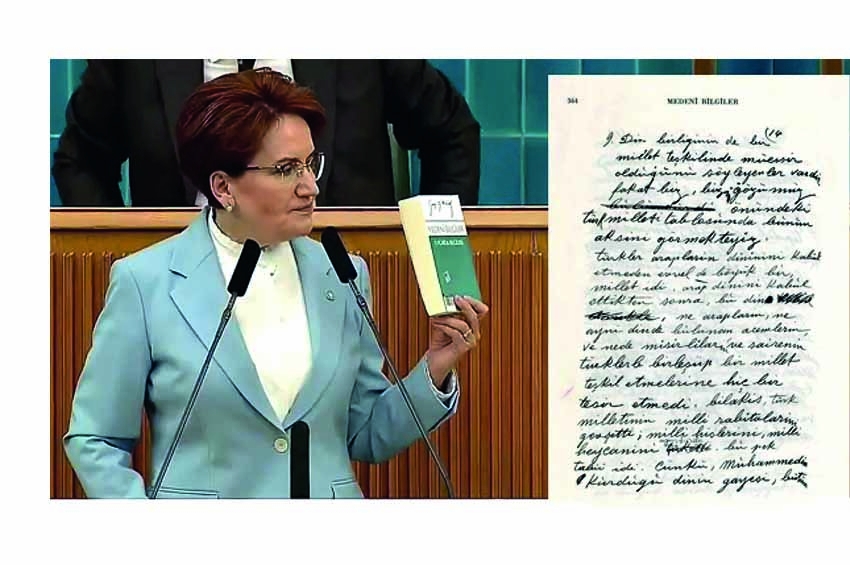 MEDENÎ BİLGİLER
364
MEDENÎ BİLGİLER
9. Din birliğinin de bir (14
millet teşkilinde müessir
olduğunu söyleyenler vardır
fakat biz, bizim gözümüz
önündeki
türk millet tablosunda bunun
aksini görmekteyiz
türkler arapların dinini kabul
etmeden evvel de büyük bir
millet idi. arap dinini kabul
ettikten sonra, bu din
ne arapların, ne
ayni dinde bulunan acemlerin
ve nede mısırlılar, ve sairenin
türklerle birleşup bir millet
teşkil etmelerine hiç bir
tesir etmedi. bilâkis, türk
milletinin milli rabıtalarını
gevşetti; milli hislerini, milli
heyecanini bu pek
tabii idi. Çünkü, Muhammedin
kurduğu dinin gayesi, bütün